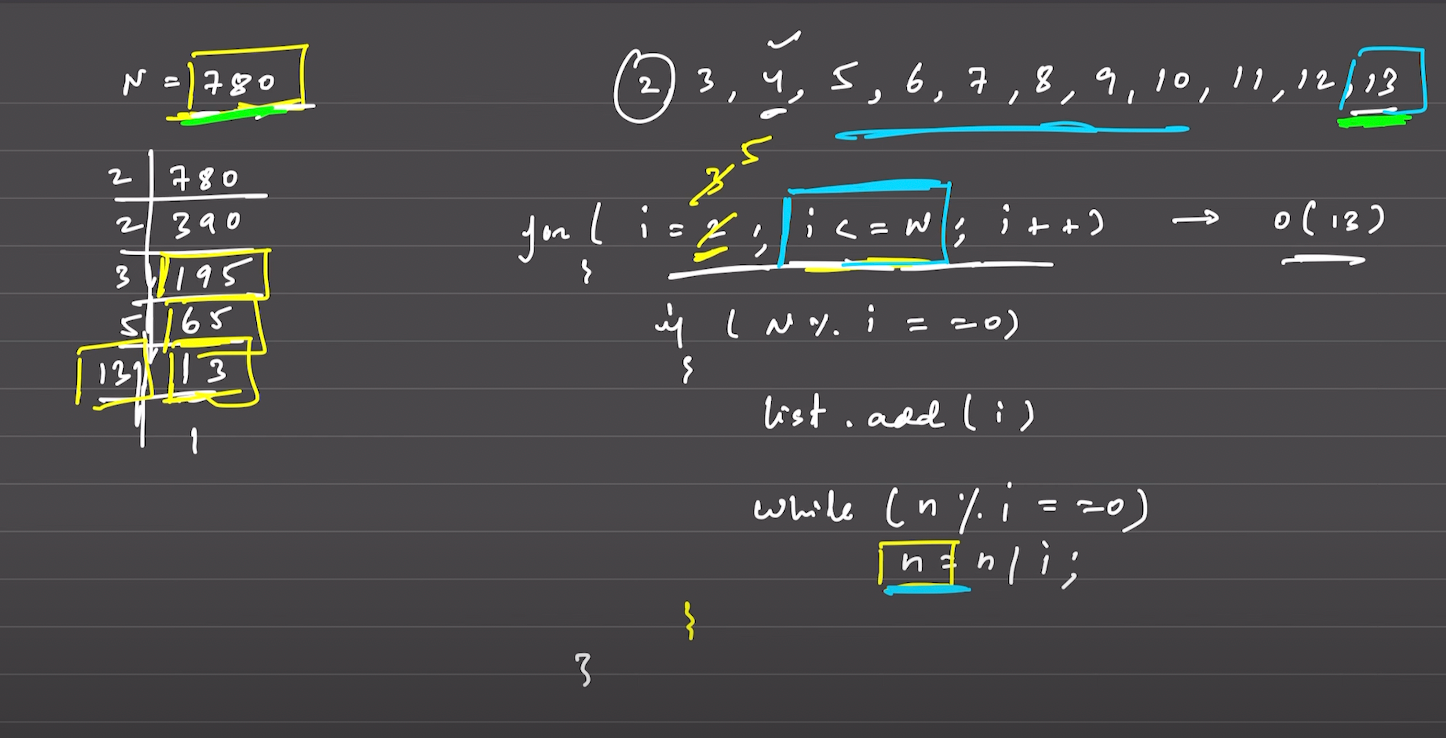 N = 780
2 | 780
2 | 390
3 | 195
5 | 65
13 | 13
1
2, 3, 4, 5, 6, 7, 8, 9, 10, 11, 12, 13
3 5
for ( i = 2 ; i <= N ; i++) → O(13)
{
if ( N % i == 0)
{
list.add(i)
while (n % i == 0)
n = n / i;
}
}